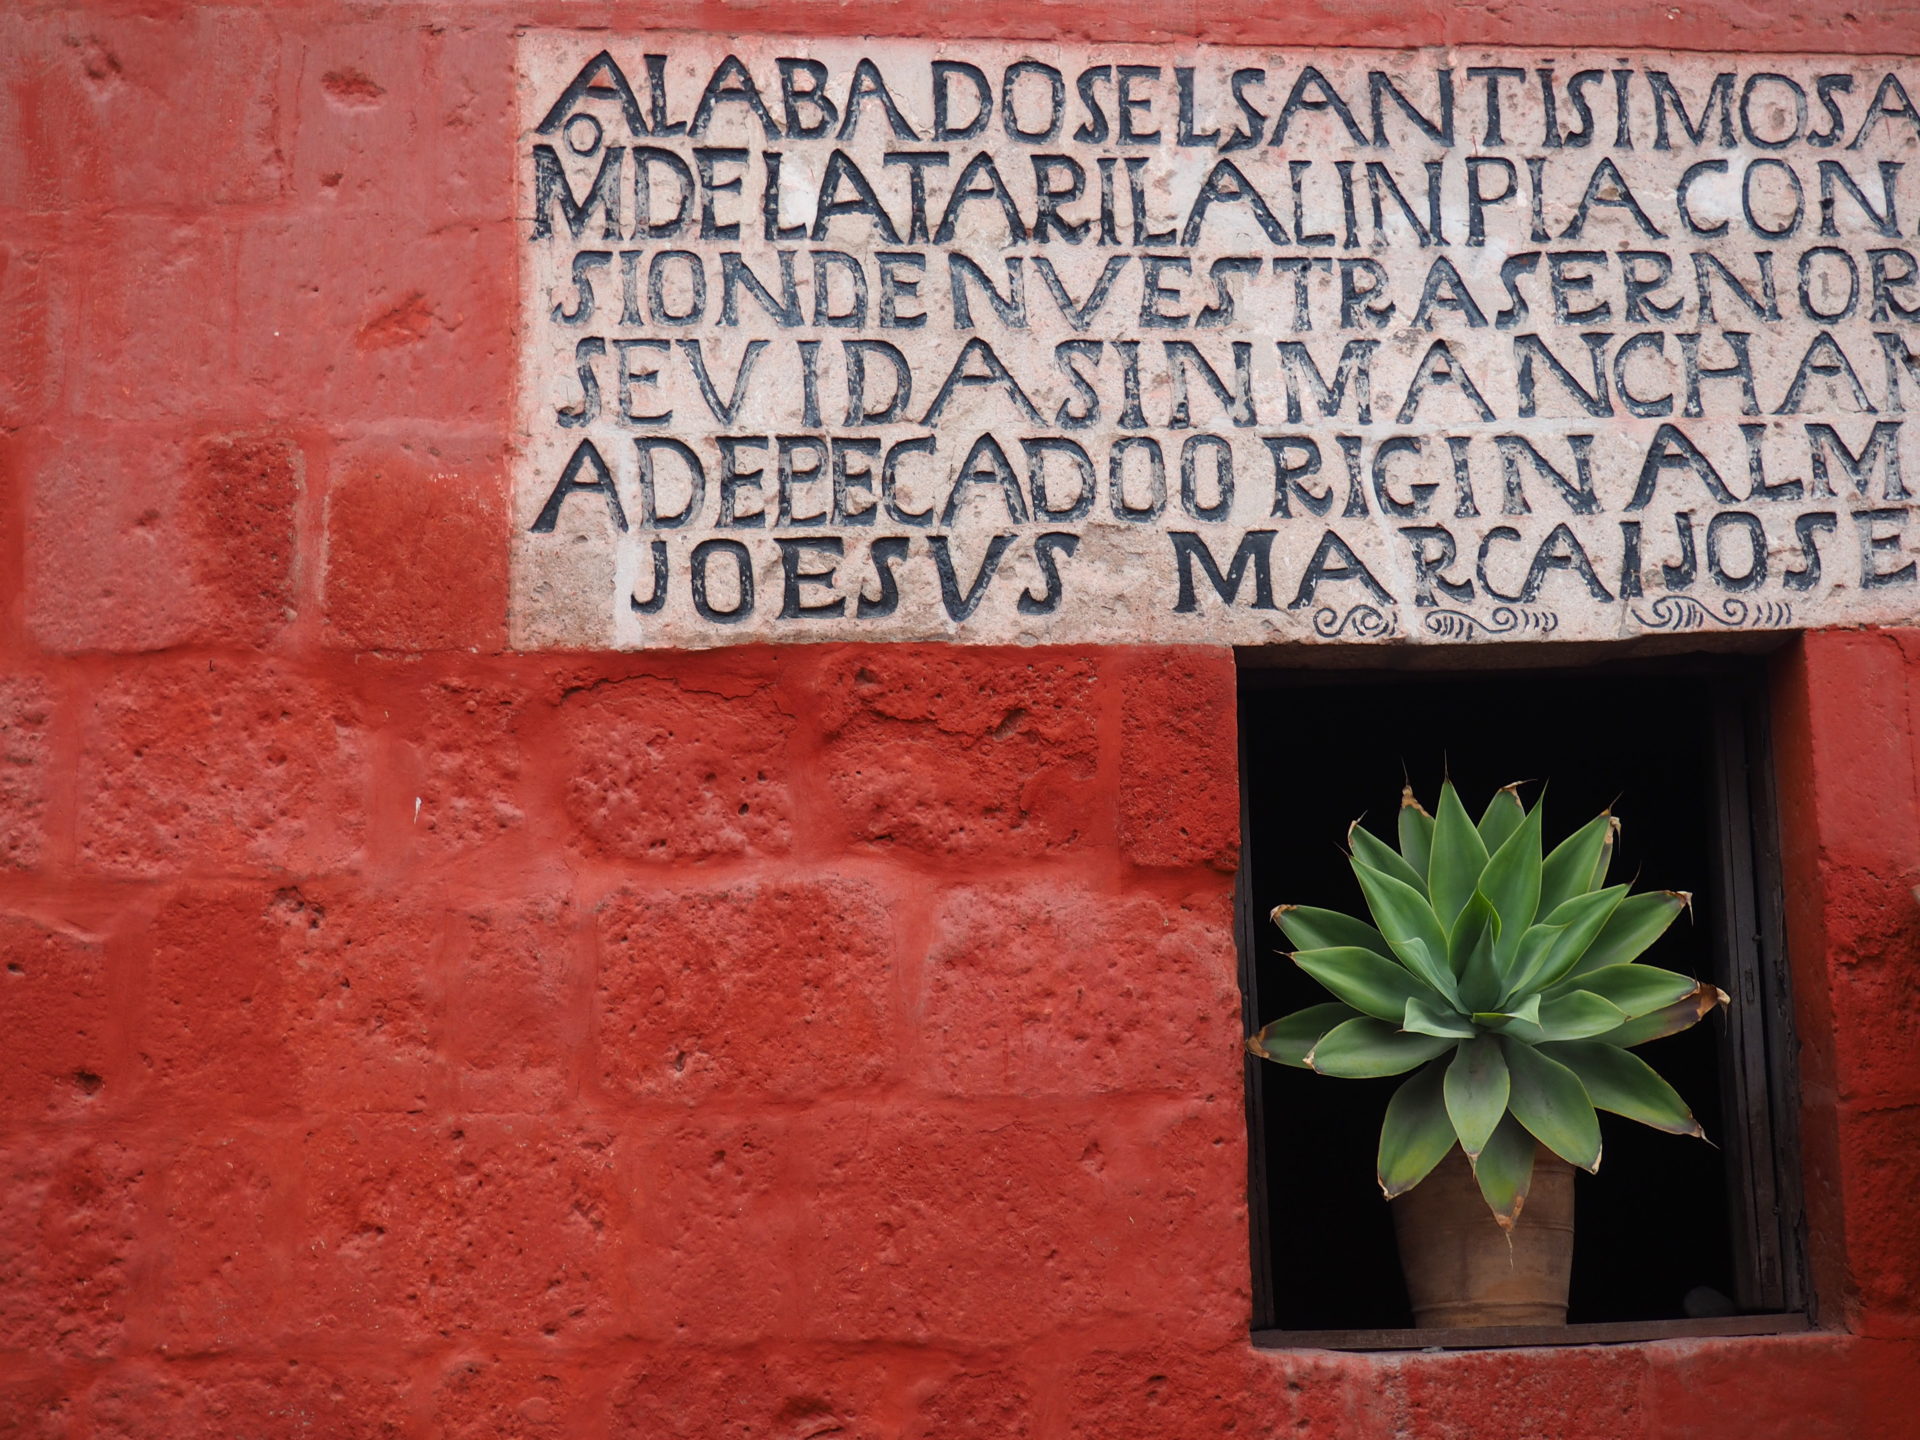 ALABADOSELSANTISIMOSA
MODELATARILALINPIACON
SIONDENVESTRASERNOR
SEVIDASINMANCHAN
ADEPECADOORIGINALM
JOESVS MARCAIJOSE